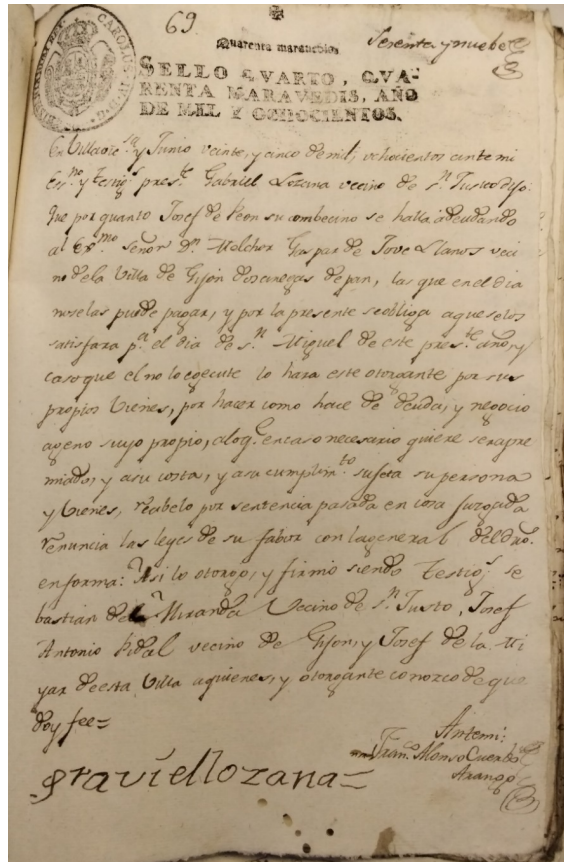 69.
Quarenta maravedis
Sesenta y nuebe
SELLO QVARTO, QVA-
RENTA MARAVEDIS, AÑO
DE MIL Y OCHOCIENTOS.
En Villavic.sa y Junio veinte, y cinco de mil, ochocientos ante mi
Ess.no y Testig.s pres.te Gabriel Lozana vecino de S.n Justo Dijo:
Que por quanto Josef de Peon su combecino se halla adeudando
al Ex.mo Señor D.n Melchor Gaspar de Jove Llanos veci
no de la Villa de Gijón dos anegas de pan, las que en el dia
no selas puede pagar, y por la presente se obliga a que selos
satisfara p.a el dia de S.n Miguel de este pres.te año, y
caso que el no lo egecute lo hara este otorgante por sus
propios Vienes, por hacer como hace de deuda, y negocio
ageno suyo propio, a loq.e en caso necesario quiere ser apre
miado, y a su costa, y a su cumplim.to sujeta su persona
y Vienes, recibelo por sentencia pasada en cosa juzgada
renuncia las leyes de su fabor con la general del dro.
en forma: Asi lo otorgo, y firmo siendo testig.s Se
bastian de la Miranda Vecino de S.n Justo, Josef
Antonio Vidal vecino de Gijon, y Josef de la Mi
yar de esta Villa a quienes, y otorgante conozco de que
doy fee=
Antemi:
Fran.co Alonso Cuerbo
Arango
graviellozana=